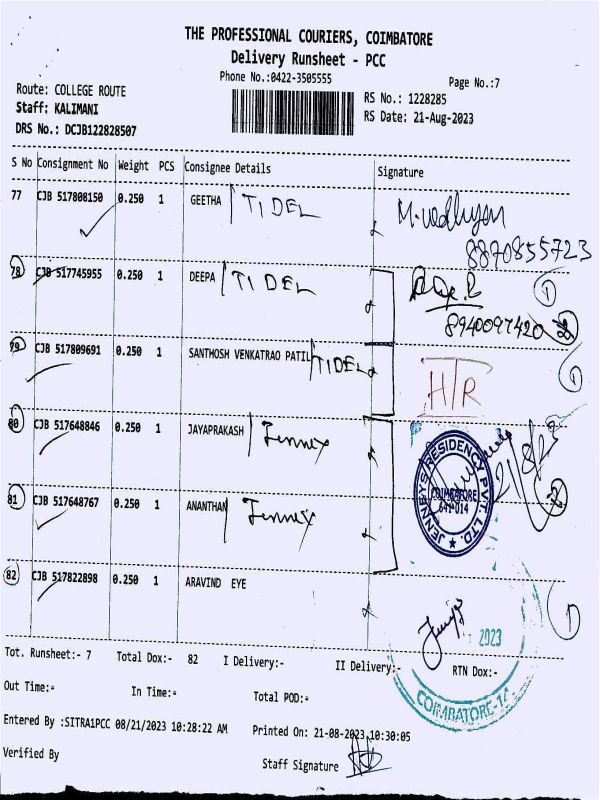 THE PROFESSIONAL COURIERS, COIMBATORE
Delivery Runsheet - PCC
Phone No.:0422-3505555
Page No.:7
Route: COLLEGE ROUTE
Staff: KALIMANI
DRS No.: DCJB122828507
RS No.: 1228285
RS Date: 21-Aug-2023
S No Consignment No Weight PCS Consignee Details Signature
77 CJB 517808150 0.250 1 GEETHA TIDEL
8870855723
78 CJB 517745955 0.250 1 DEEPA TIDEL
8940097420
79 CJB 517809691 0.250 1 SANTHOSH VENKATRAO PATIL TIDEL HTR
80 CJB 517648846 0.250 1 JAYAPRAKASH Jenney
JENNEYS RESIDENCY PVT. LTD.
COIMBATORE
641 014
81 CJB 517648767 0.250 1 ANANTHAN Jenney
82 CJB 517822898 0.250 1 ARAVIND EYE
2023
COIMBATORE-14
Tot. Runsheet:- 7 Total Dox:- 82 I Delivery:- II Delivery:- RTN Dox:-
Out Time:- In Time:- Total POD:-
Entered By :SITRA1PCC 08/21/2023 10:28:22 AM Printed On: 21-08-2023 10:30:05
Verified By Staff Signature